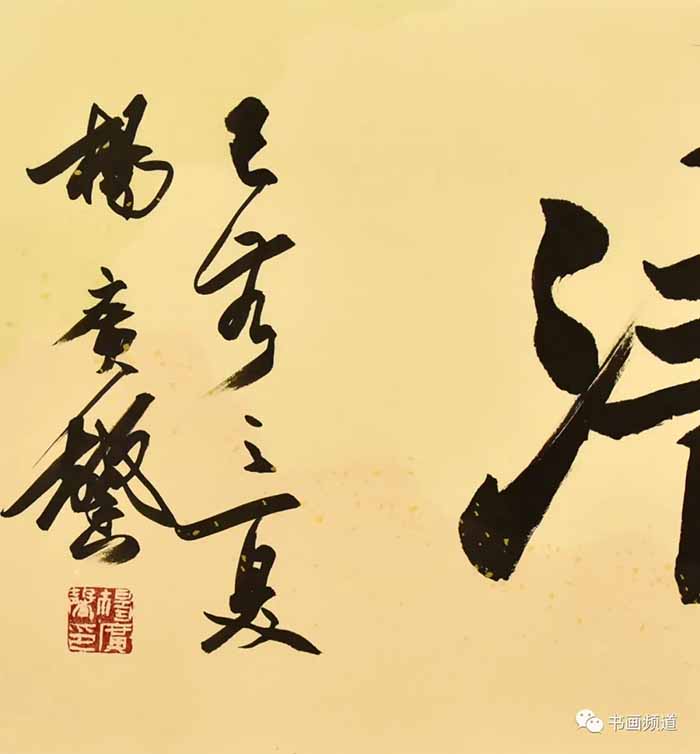 己亥之夏
楊廣馨
楊廣馨印
书画频道